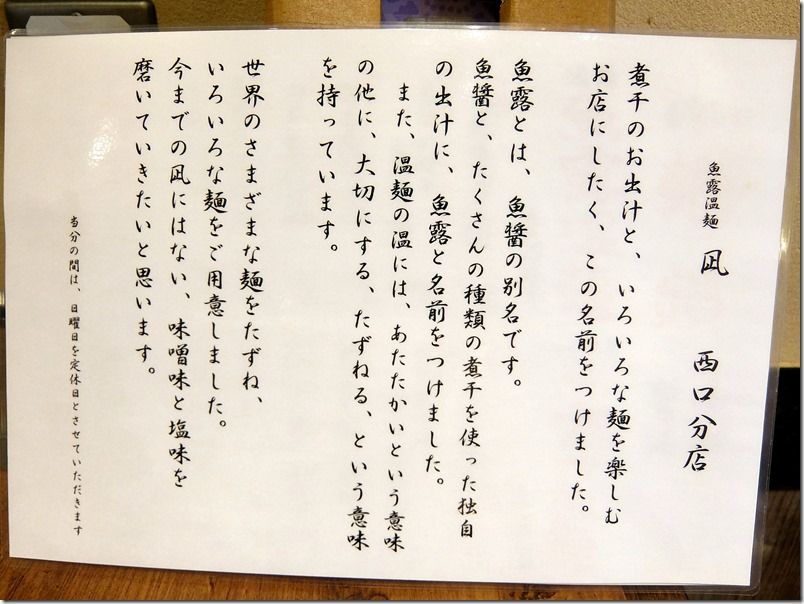 魚露温麺 凪 西口分店
煮干のお出汁と、いろいろな麺を楽しむ
お店にしたく、この名前をつけました。
魚露とは、魚醤の別名です。
魚醤と、たくさんの種類の煮干を使った独自
の出汁に、魚露と名前をつけました。
また、温麺の温には、あたたかいという意味
の他に、大切にする、たずねる、という意味
を持っています。
世界のさまざまな麺をたずね、
いろいろな麺をご用意しました。
今までの凪にはない、味噌味と塩味を
磨いていきたいと思います。
当分の間は、日曜日を定休日とさせていただきます